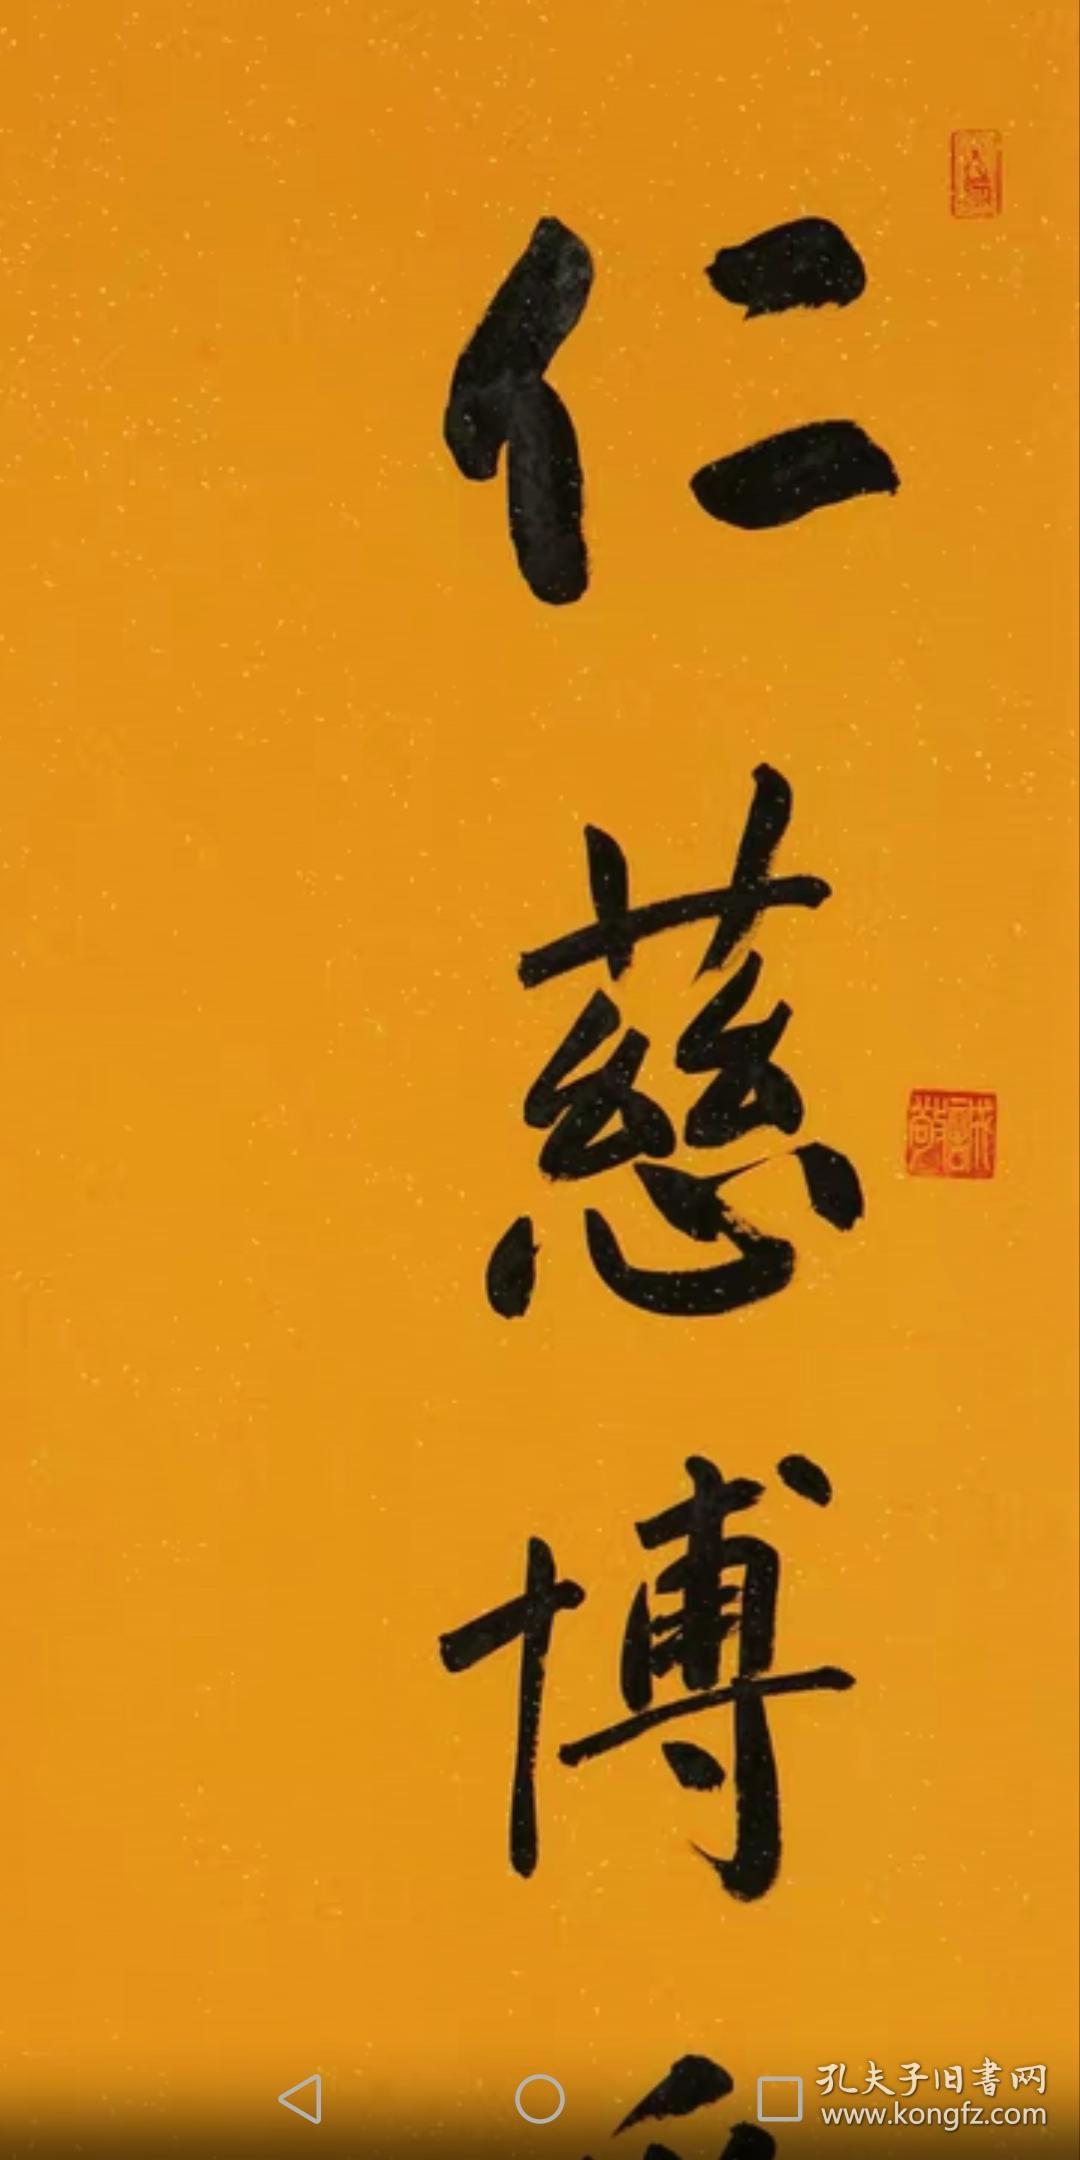 仁慈博
誠敬
孔夫子旧書网
www.kongfz.com